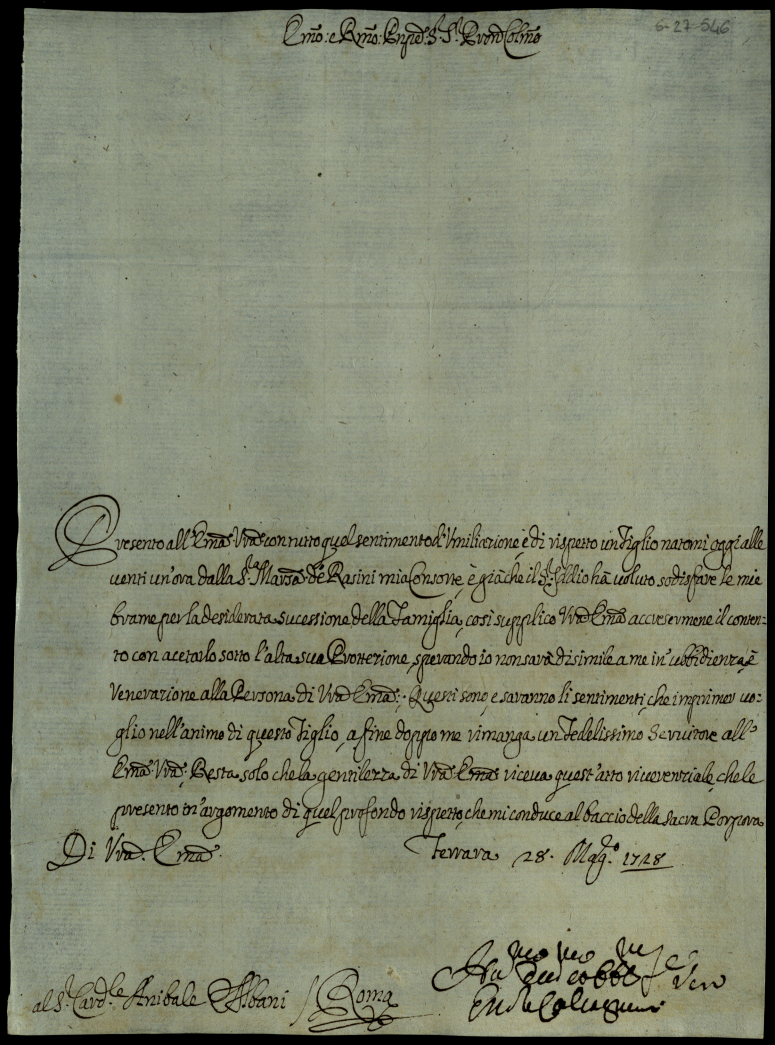 6-27-546
Emo: e Rmo: Prnpe S.r S.r Pron Colmo
Presento all'Ema: Vra: con tutto quel sentimento d'Vmiliazione, è di rispetto un Figlio natomi oggi alle
venti un'ora dalla S.ra Marsa: de Rasini mia Consorte, è già che il S.r Iddio hà voluto sodisfare le mie
brame per la desiderata sucessione della Famiglia, così supplico Vra: Ema: accresermene il conten-
to con acetarlo sotto l'alta sua Protterione, sperando io non sarà disimile a me in' ubbidienza, è
Venerazione alla Persona di Vra: Ema:. Questi sono, e saranno li sentimenti, che imprimer vo-
glio nell'animo di questo Figlio, a fine doppo me rimanga un Fedelissimo Servitore all'
Ema: Vra: Resta solo che la gentilezza di Vra: Ema: riceva quest'atto riverenziale, che le
presento in' argomento di quel profondo rispetto, che mi conduce al baccio della Sacra Porpora
Di Vra: Ema:
Ferrara 28. Mag.o 1728
mo mo
al S.r Card.le Anibale Albani / Roma